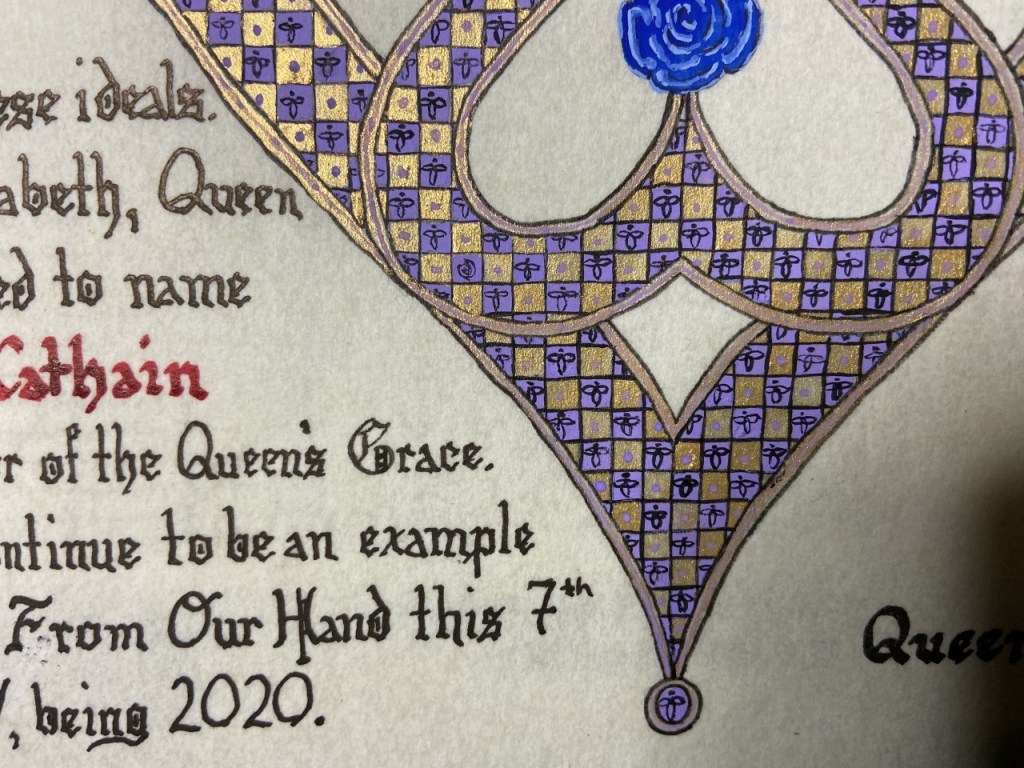 ideals.
Queen
to name
Cathain
of the Queen's Grace.
to be an example
From Our Hand this 7th
, being 2020.
Queen